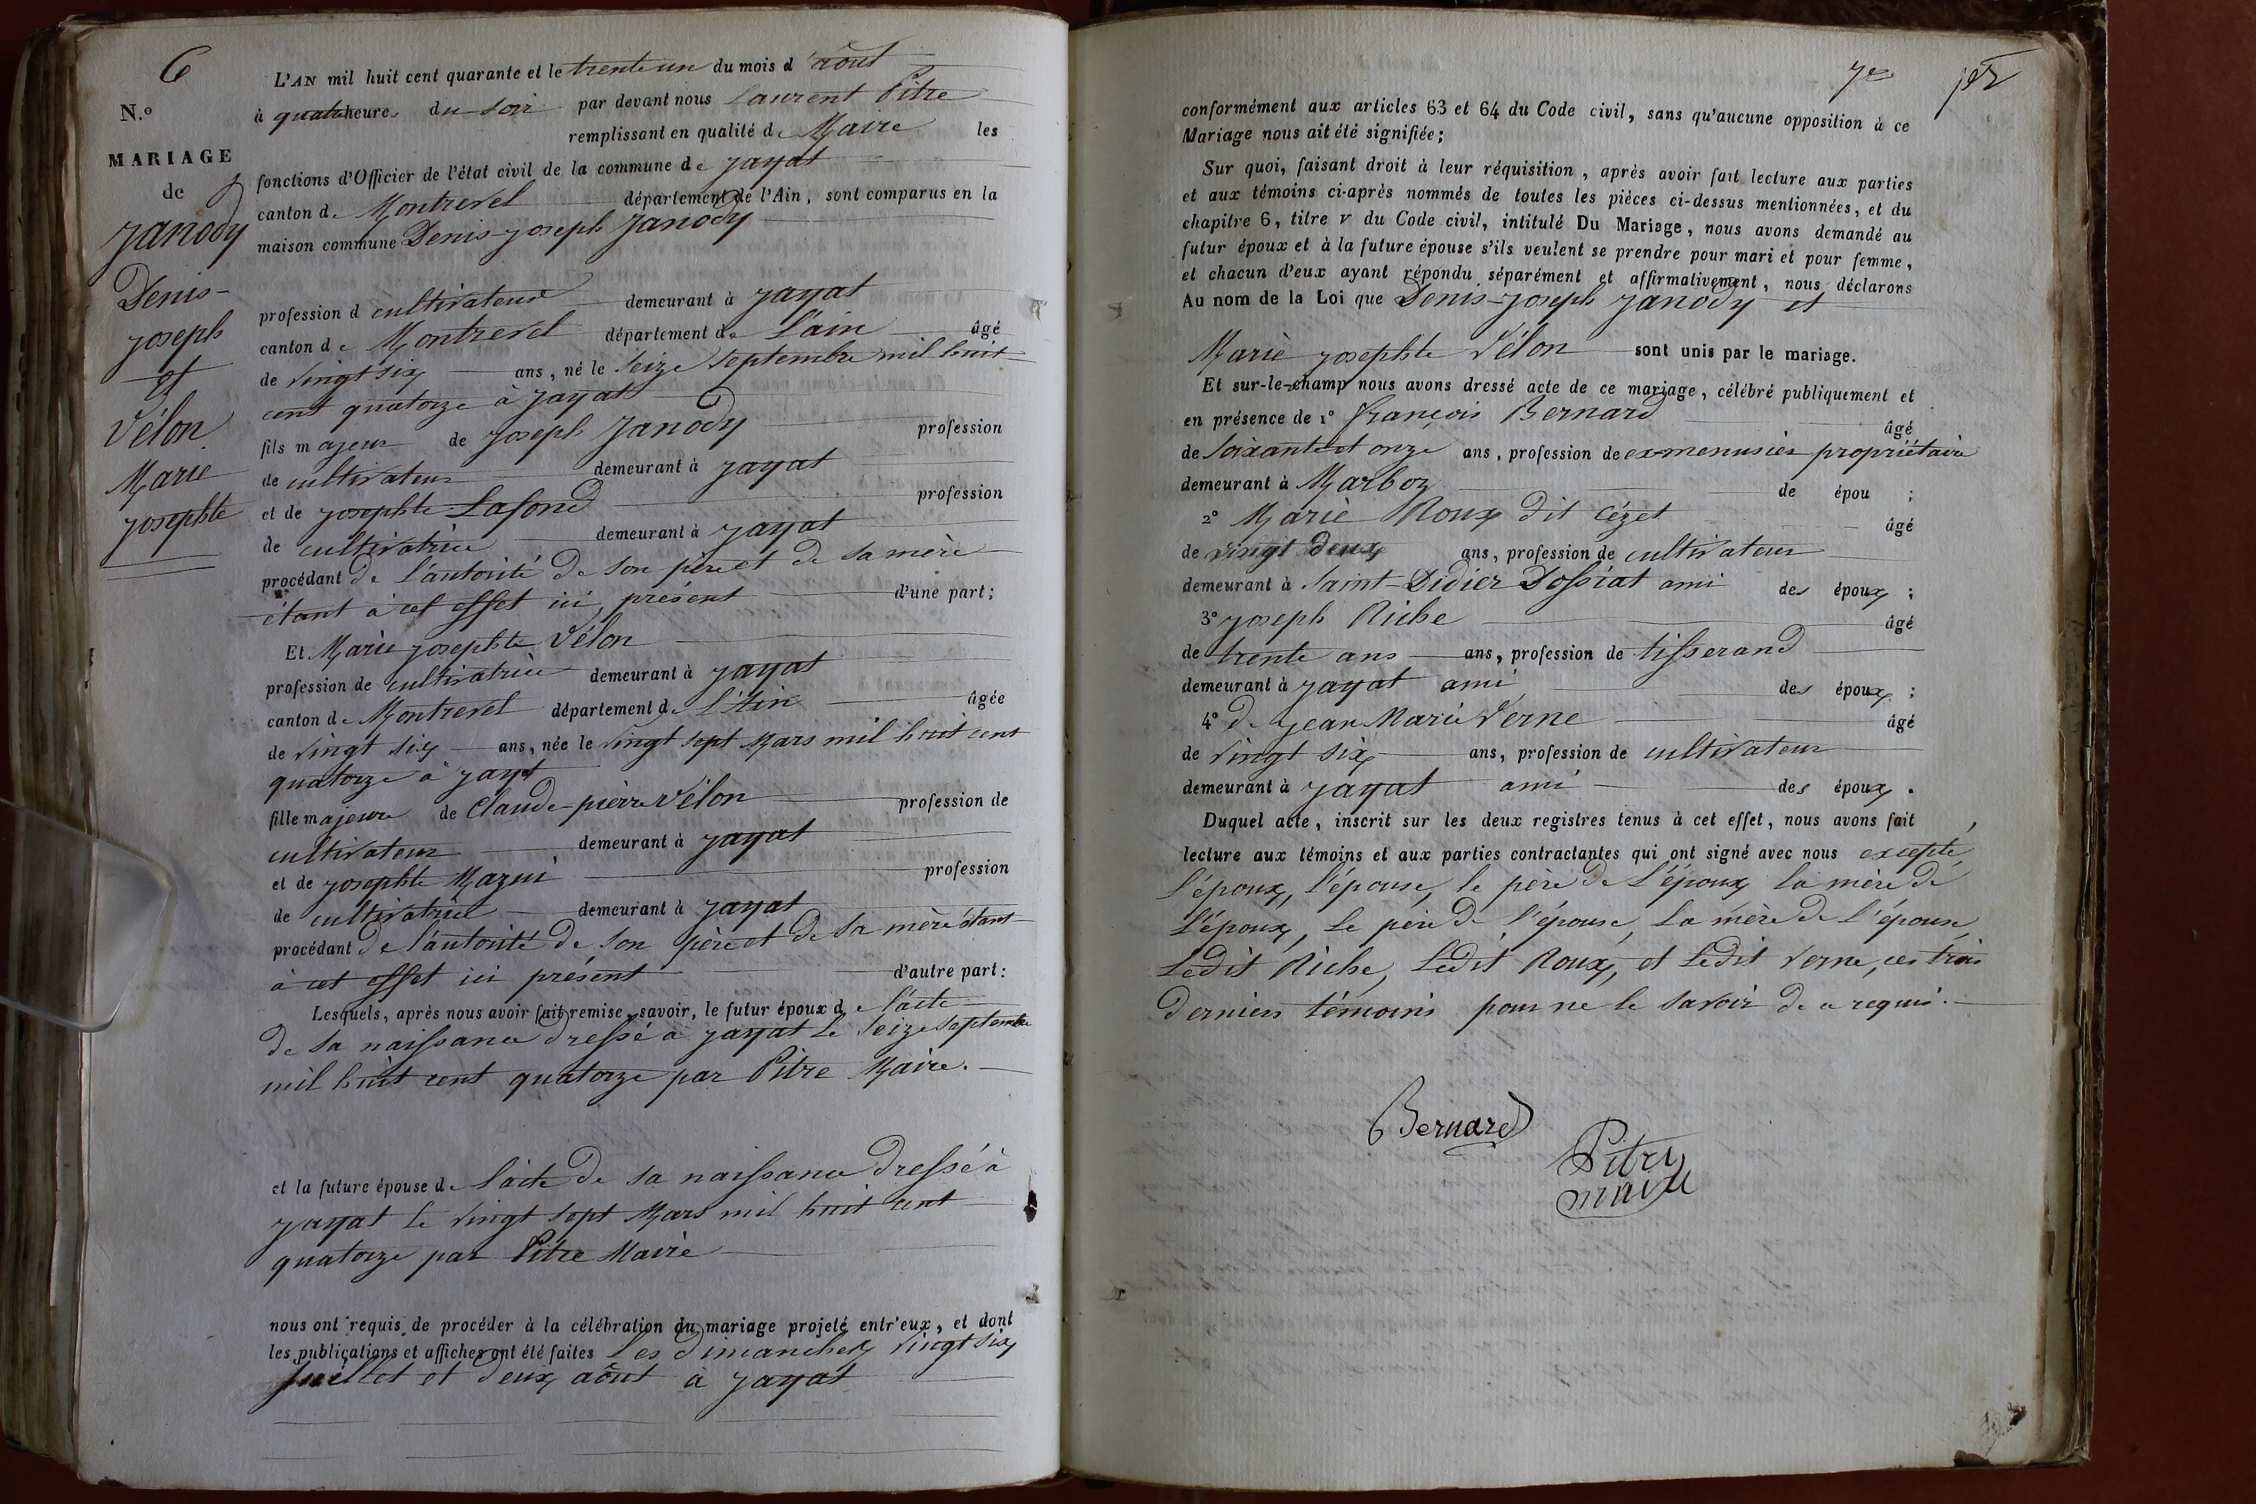 6
N.º
MARIAGE
de
Janody
Denis-
joseph
et
Vélon
Marie
josephte
L'AN mil huit cent quarante et le trente un du mois d'août
à quatre heures du soir par devant nous Laurent Pitre
remplissant en qualité de Maire les
fonctions d'Officier de l'état civil de la commune de jayat
canton de Montrevel département de l'Ain, sont comparus en la
maison commune Denis-joseph Janody
profession d cultivateur demeurant à jayat
canton de Montrevel département de L'ain âgé
de vingt six ans, né le seize septembre mil huit
cent quatorze à jayat
fils majeur de joseph Janody profession
de cultivateur demeurant à jayat
et de josephte Lafond profession
de cultivatrice demeurant à jayat
procédant de l'autorité de son père et de sa mère
étant à cet effet ici, présent d'une part;
Et Marie josephte Vélon
profession de cultivatrice demeurant à jayat
canton de Montrevel département de L'Ain âgée
de vingt six ans, née le vingt sept Mars mil huit cent
quatorze à jayt
fille majeure de Claude-pierre Vélon profession de
cultivateur demeurant à jayat
et de josephte Mazui profession
de cultivatrice demeurant à jayat
procédant de l'autorité de son père et de sa mère étant
à cet effet ici présent d'autre part:
Lesquels, après nous avoir fait remise, savoir, le futur époux de l'acte
de sa naissance dressé à jayat le seize septembre
mil huit cent quatorze par Pitre Maire.
et la future épouse de l'acte de sa naissance dressé à
jayat le vingt sept Mars mil huit cent
quatorze par Pitre Maire
nous ont requis de procéder à la célébration du mariage projeté entr'eux, et dont
les publications et affiches ont été faites les dimanches vingt six
juillet et deux août à jayat
7e
conformément aux articles 63 et 64 du Code civil, sans qu'aucune opposition à ce
Mariage nous ait été signifiée;
Sur quoi, faisant droit à leur réquisition, après avoir fait lecture aux parties
et aux témoins ci-après nommés de toutes les pièces ci-dessus mentionnées, et du
chapitre 6, titre v du Code civil, intitulé Du Mariage, nous avons demandé au
futur époux et à la future épouse s'ils veulent se prendre pour mari et pour femme,
et chacun d'eux ayant répondu séparément et affirmativement, nous déclarons
Au nom de la Loi que Denis-joseph Janody et
Marie josephte Vélon sont unis par le mariage.
Et sur-le-champ nous avons dressé acte de ce mariage, célébré publiquement et
en présence de 1º françois Bernard âgé
de soixante et onze ans, profession de ex-menusier propriétaire
demeurant à Marboz de épou ;
2º Marie Roux dit Cézet âgé
de vingt deux ans, profession de cultivateur
demeurant à Saint-Didier Dossiat ami des époux ;
3º joseph Riche âgé
de trente ans ans, profession de tisserand
demeurant à jayat ami des époux ;
4º de jean Marie Verne âgé
de vingt six ans, profession de cultivateur
demeurant à jayat ami des époux .
Duquel acte, inscrit sur les deux registres tenus à cet effet, nous avons fait
lecture aux témoins et aux parties contractantes qui ont signé avec nous excepté,
l'époux, l'épouse, le père de l'époux la mère de
l'époux, le père de l'épouse, la mère de l'épouse,
Ledit Riche, Ledit Roux, et Ledit Verne, ces trois
derniers témoins pour ne le savoir de ce requis.
Bernard
Pitre
maire